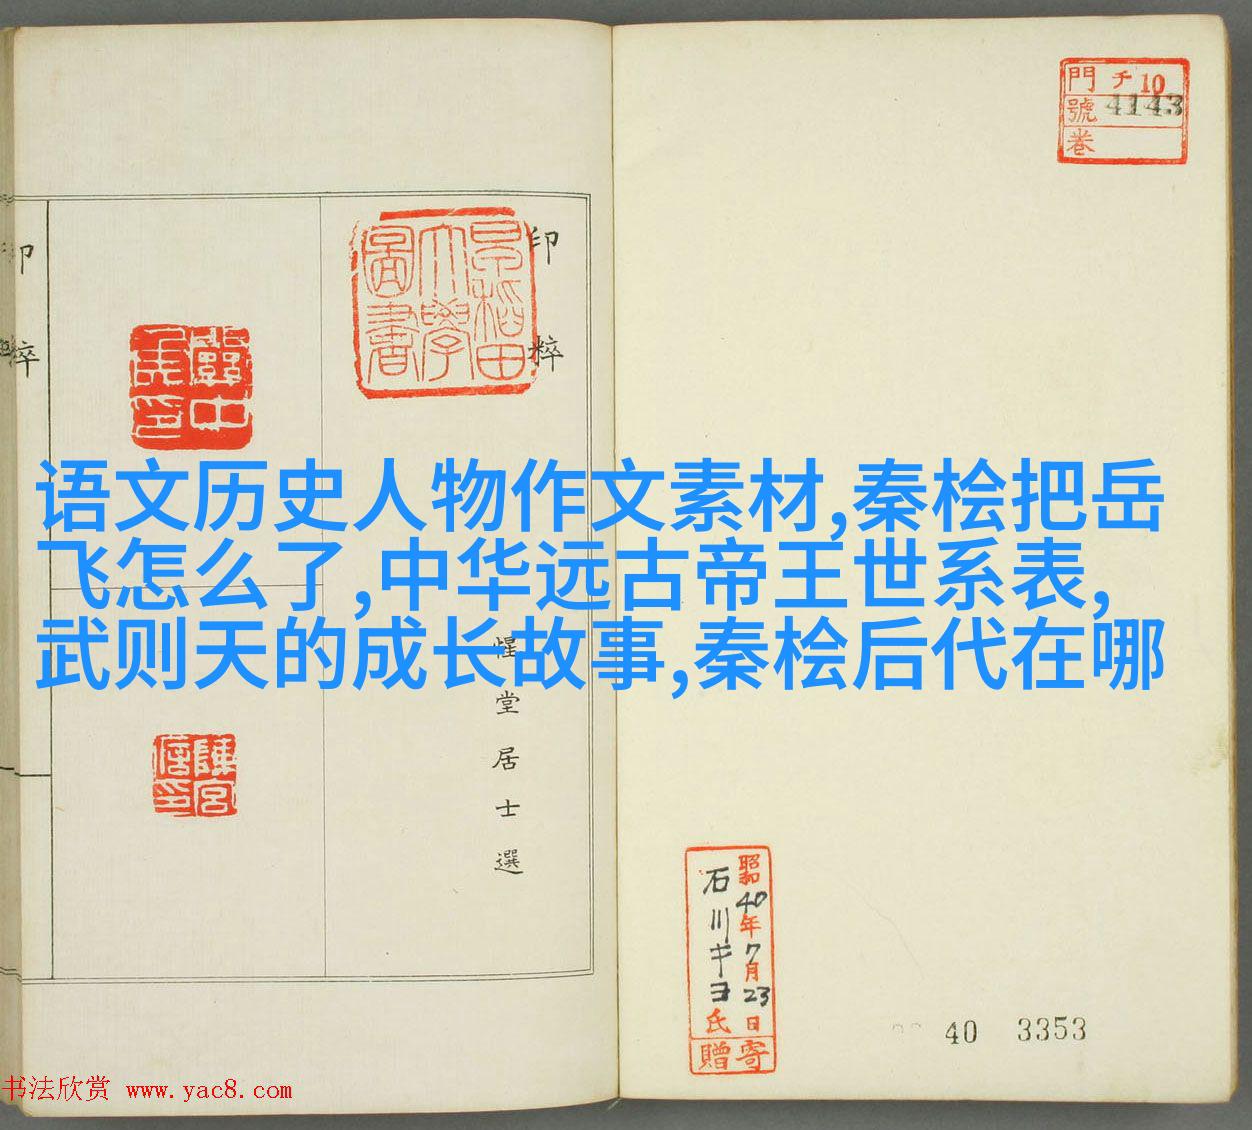 門 チ10
號 4143
卷
印粹
印粹
早稻田
大學
圖書
語文历史人物作文素材,秦桧把岳
飞怎么了,中华远古帝王世系表,
武则天的成长故事,秦桧后代在哪
惺堂居士選
陳宮
信印
昭和40年7月23日
石川キヨ氏
寄贈
40 3353
书法欣赏 www.yac8.com